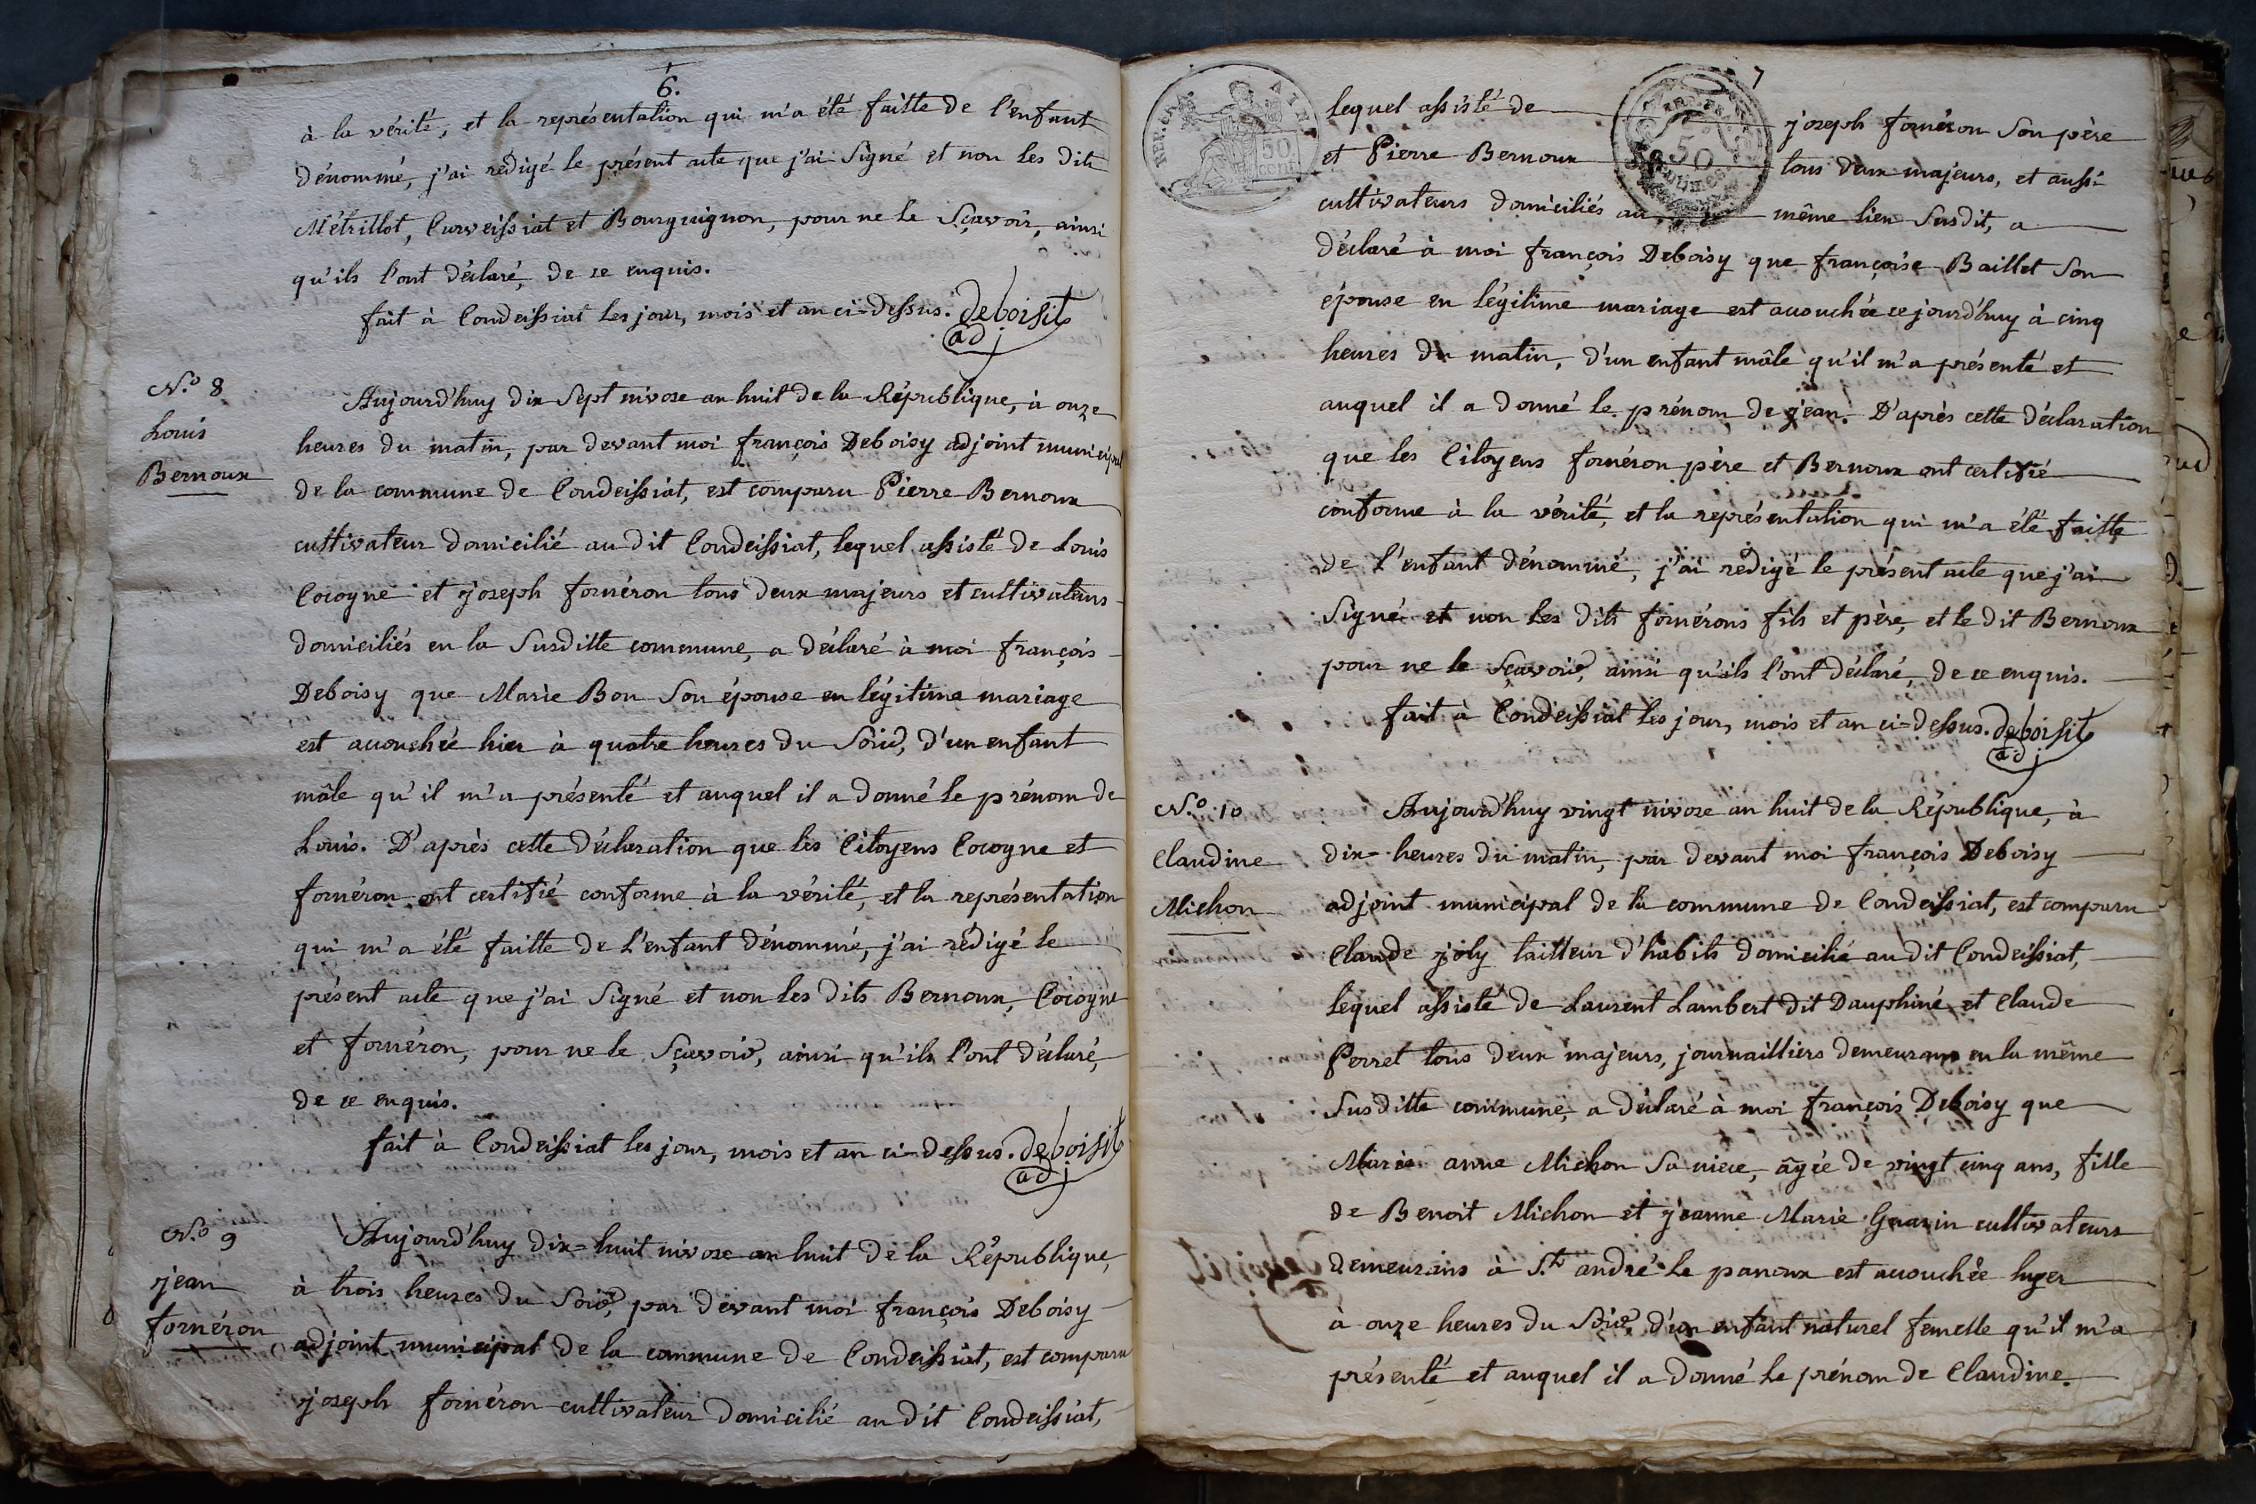 6.
à la vérité, et la représentation qui m'a été faitte de l'enfant
dénommé, j'ai rédigé le présent acte que j'ai Signé et non les dits
Métrillot, Curveissiat et Bourguignon, pour ne le Sçavoir, ainsi
qu'ils l'ont déclaré, de ce enquis.
fait à Condeissiat les jour, mois et an ci=dessus. deboisit
adj
N.o 8
Louis
Bernoux
Aujourd'huy dix Sept nivose an huit de la République, à onze
heures du matin, par devant moi françois Deboisy adjoint municipal
de la commune de Condeissiat, est comparu Pierre Bernoux
cultivateur domicilié au dit Condeissiat, lequel assisté de Louis
Cocogne et joseph fornéron tous deux majeurs et cultivateurs
domiciliés en la Susditte commune, a déclaré à moi françois
Deboisy que Marie Bon Son épouse en légitime mariage
est accouchée hier à quatre heures du Soir, d'un enfant
mâle qu'il m'a présenté et auquel il a donné le prénom de
Louis. D'après cette déclaration que les Citoyens Cocogne et
fornéron ont certifié conforme à la vérité, et la représentation
qui m'a été faitte de l'enfant dénommé, j'ai rédigé le
présent acte que j'ai Signé et non les dits Bernoux, Cocogne
et fornéron, pour ne le Sçavoir, ainsi qu'ils l'ont déclaré,
de ce enquis.
fait à Condeissiat les jour, mois et an ci=dessus. deboisit
adj
N.o 9
jean
fornéron
Aujourd'huy dix=huit nivose an huit de la République,
à trois heures du Soir, par devant moi françois Deboisy
adjoint municipal de la commune de Condeissiat, est comparu
joseph fornéron cultivateur domicilié au dit Condeissiat,
7
REP. FRA.
50
cent
50
centimes
lequel assisté de joseph fornéron Son père
et Pierre Bernoux tous deux majeurs, et aussi
cultivateurs domiciliés au même lieu Susdit, a
déclaré à moi françois Deboisy que françoise Baillet Son
épouse en légitime mariage est accouchée ce jourd'huy à cinq
heures du matin, d'un enfant mâle qu'il m'a présenté et
auquel il a donné le prénom de jean. D'après cette déclaration
que les Citoyens fornéron père et Bernoux ont certifié
conforme à la vérité, et la représentation qui m'a été faitte
de l'enfant dénommé, j'ai rédigé le présent acte que j'ai
Signé et non les dits fornérons fils et père, et le dit Bernoux
pour ne le Sçavoir, ainsi qu'ils l'ont déclaré, de ce enquis.
fait à Condeissiat les jour, mois et an ci=dessus. deboisit
adj
N.o 10
Claudine
Michon
Aujourd'huy vingt nivose an huit de la République, à
dix=heures du matin, par devant moi françois Deboisy
adjoint municipal de la commune de Condeissiat, est comparu
Claude joly tailleur d'habits domicilié au dit Condeissiat,
lequel assisté de Laurent Lambert dit Dauphiné et Claude
Perret tous deux majeurs, journailliers demeurans en la même
Susditte commune, a déclaré à moi françois Deboisy que
Marie anne Michon Sa niece, âgée de vingt cinq ans, fille
de Benoit Michon et jeanne Marie Guarin cultivateurs
demeurans à S.t andré le panoux est accouchée hyer
à onze heures du Soir, d'un enfant naturel femelle qu'il m'a
présenté et auquel il a donné le prénom de Claudine.